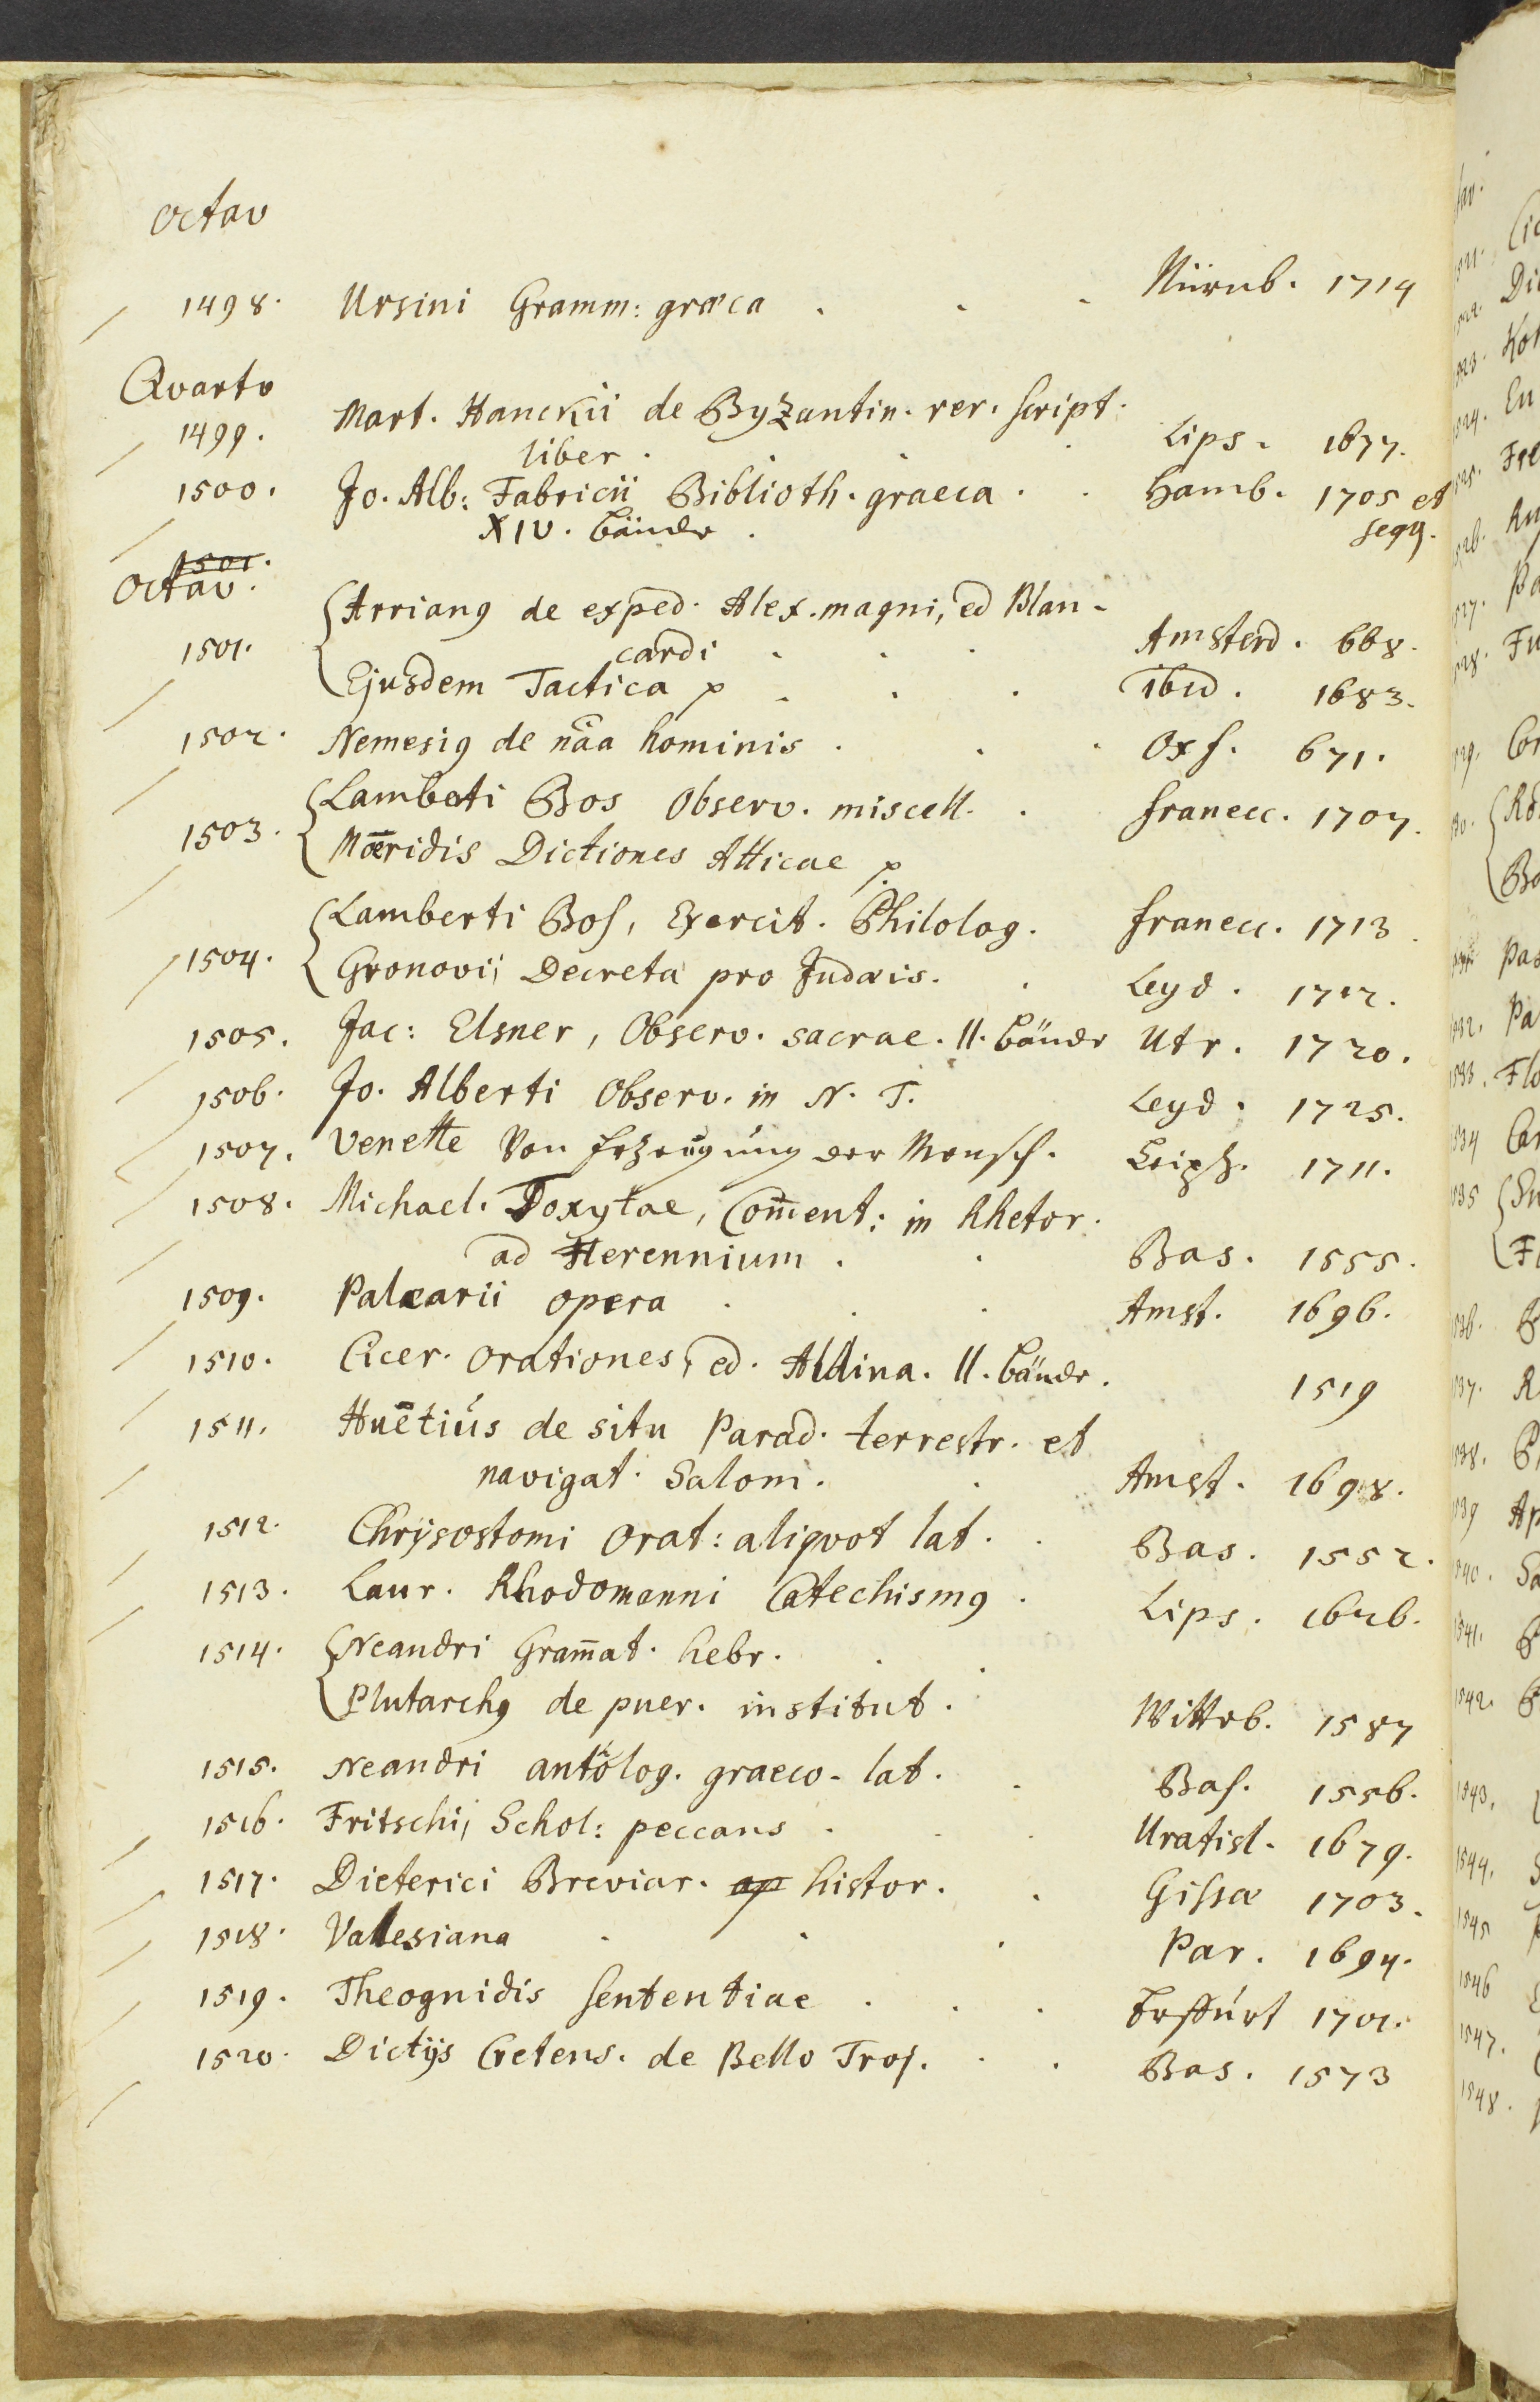 Octav
1498. Ursini Gramm: græca . . . Nürnb. 1714
Qvarto
1499. Mart. Hanckii de Byzantin. rer. script.
liber . . . . Lips. 1677.
1500. Jo. Alb: Fabricii Biblioth. graeca . . Hamb. 1705 et
XIV. Bände . seqq.
1501.
Octav.
1501. Arrianq de exped. Alex. magni, ed Blan-
cardi . . . Amsterd. 668.
Ejusdem Tactica p . . . ibid. 1683.
1502. Nemesiq de nãa hominis . . . Oxf. 671.
1503. Lamberti Bos Observ. miscell. . Franecc. 1707.
Mœridis Dictiones Atticae p.
1504. Lamberti Bos, Exercit. Philolog. Franecc. 1713.
Gronovii, Decreta pro Judæis. . Leyd. 1712.
1505. Jac: Elsner, Observ. sacrae. II. Bände Utr. 1720.
1506. Jo. Alberti Observ. in N. T. Leyd. 1725.
1507. Venette Von Erzeugung der Mensch. Leipz. 1711.
1508. Michael. Toxytae, Com̅ent: in Rhetor.
ad Herennium . . Bas. 1555.
1509. Palearii opera . . . Amst. 1696.
1510. Cicer. Orationes, ed. Aldina. II. Bände. 1519
1511. Huëtius de situ Parad. terrestr. et
navigat. Salom. . Amst. 1698.
1512. Chrÿsostomi Orat: aliqvot lat. . Bas. 1552.
1513. Laur. Rhodomanni Catechismq . Lips. 1626.
1514. Neandri Gram̅at. hebr. . .
Plutarchq de puer. institut. Witteb. 1587
1515. Neandri antolog. graeco-lat. . Bas. 1556.
1516. Fritschi, Schol: peccans . . . Uratisl. 1679.
1517. Dieterici Breviar. ap histor. . Gissæ 1703.
1518. Valesiana . . . Par. 1694.
1519. Theognidis Sententiae . . . Erffurt 1701.
1520. Dictÿs Cretens. de Bello Troj. . . Bas. 1573